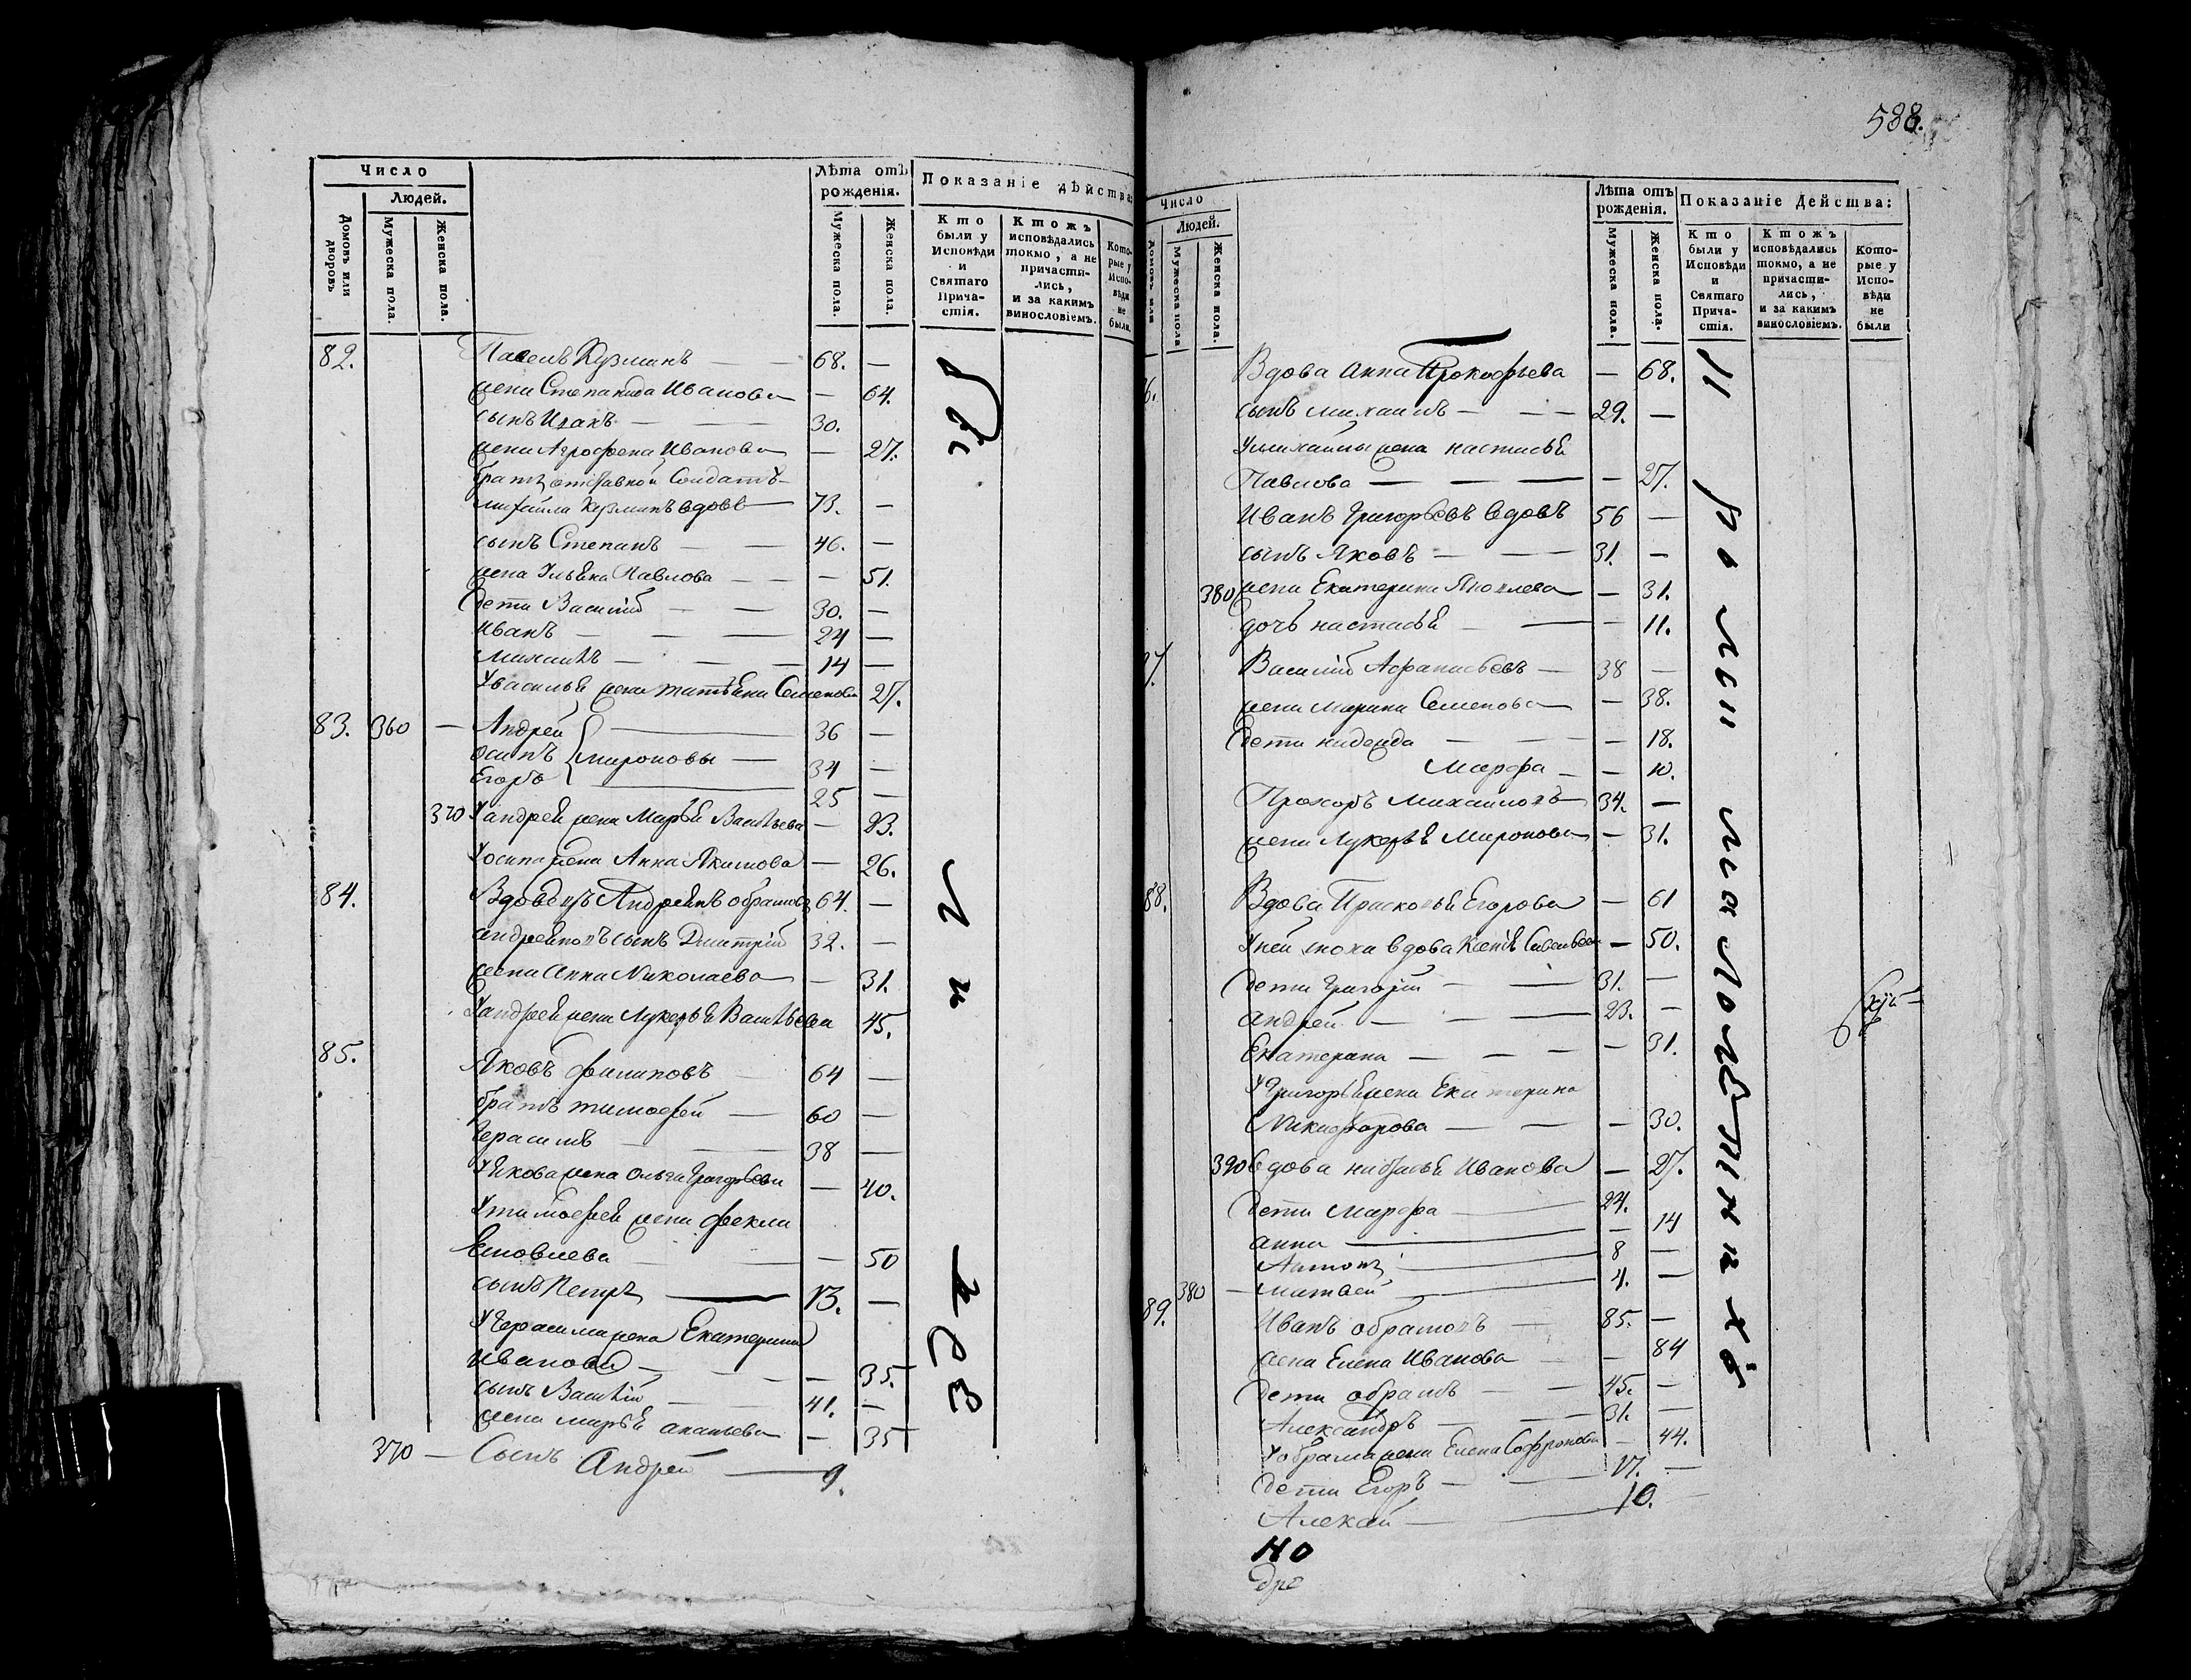 Число
Людей.
Домовъ или дворовъ
Мужеска пола.
Женска пола.
Лѣта отъ рожденія.
Мужеска пола.
Женска пола.
Показаніе дѣйства:
Кто были у Исповѣди и Святаго Прича-стія.
Ктожъ исповѣдались токмо, а не причасти-лись, и за какимъ винословіемъ.
Кото-рые у Испо-вѣди не были.
82. Павелъ Кузминъ — 68. —
жена Степанида Иванова — 64.
сынъ Исакъ — 30.
жена Агрофена Иванова — 27.
братъ отставной Солдатъ
михайла Кузминъ вдовъ — 73. —
сынъ Степанъ — 46. —
жена Ульяна Павлова — 51.
дети Василій — 30. —
Иванъ — 24 —
Михаилъ — 14 —
У василья жена татьяна Семенова 27.
83. 360 — Андрей — 36 —
осипъ мироновы — 34 —
Егоръ — 25 —
370 У андрея жена Марья Васильева — 23.
У осипа жена Анна Якимова — 26.
84. Вдовецъ Андреянъ обрамовъ 64. —
андреяновъ сынъ Дмитрій 32. —
жена Анна Николаева — 31.
У андрея жена Лукерья Васильева 45.
85. Яковъ филиповъ 64 —
братъ тимофей — 60 —
Герасимъ — 38 —
У Якова жена Ольга Григорьева — 40.
У тимофея жена фекла
Яковлева — 50
сынъ Петръ — 13. —
У Герасима жена Екатерина
Иванова — 35.
сынъ Василій 41. —
жена марья ананьева — 35
370 — Сынъ Андрей — 9.
588.
Число
Людей.
Мужеска пола
Женска пола.
Лѣта отъ рожденія.
Мужеска пола.
Женска пола.
Показаніе Действа:
Кто были у Исповѣди и Святаго Прича-стія.
Ктожъ исповѣдались токмо, а не причасти-лись, и за какимъ винословіемъ.
Кото-рые у Испо-вѣди не были
Вдова Анна Прокофьева — 68.
6. сынъ михаилъ — 29. —
У михаилы жена настасья
Павлова — 27.
Иванъ Григорьевъ вдовъ 56 —
сынъ Яковъ — 31. —
380 жена Екатерина Яковлева — 31.
дочь настасья — 11.
7. Василій Афанасьевъ — 38 —
жена марина Семенова — 38.
дети надежда — 18.
Марфа — 10.
Прохоръ Михаиловъ 34. —
жена Лукерья Миронова — 31.
88. Вдова Прасковья Егорова — 61
У ней сноха вдова Ксенія Савельева — 50.
дети Григорій — 31. —
андрей — 23. —
Екатерина — 31.
У Григорья жена Екатерина
Никифорова — 30.
390 вдова настасья Иванова — 27.
дети марфа — 24.
анна — 14
Антонъ — 8 —
380 — матвей — 4. —
89. Иванъ обрамовъ — 85. —
жена Елена Иванова — 84
дети обрамъ — 45. —
Александръ — 31. —
У обрама жена Елена Софронова — 44.
дети Егоръ — 17. —
Алексей — 10.
но
дре